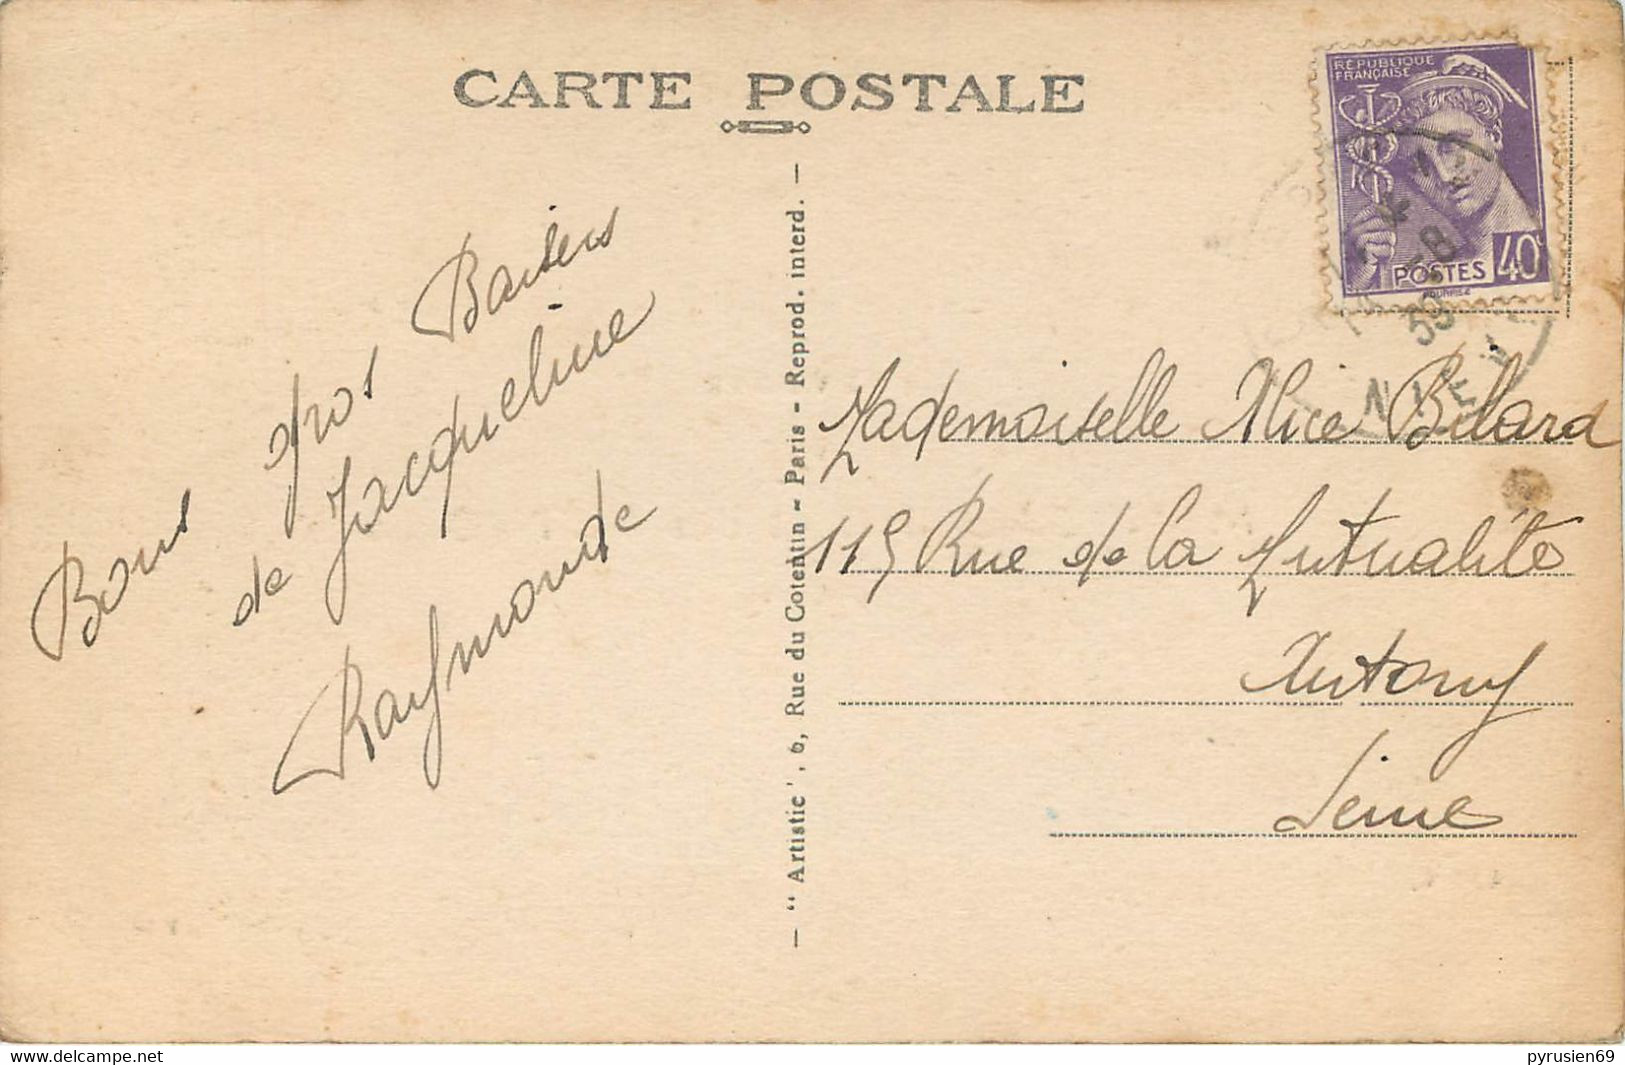 CARTE POSTALE
RÉPUBLIQUE
FRANÇAISE
POSTES 40c
Bons gros Baisers
de Jacqueline
Raymonde
— “ Artistic ”, 6, Rue du Cotentin - Paris - Reprod. interd. —
Mademoiselle Alice Bilard
119 Rue de la Mutualité
Antony
Seine
www.delcampe.net
pyrusien69